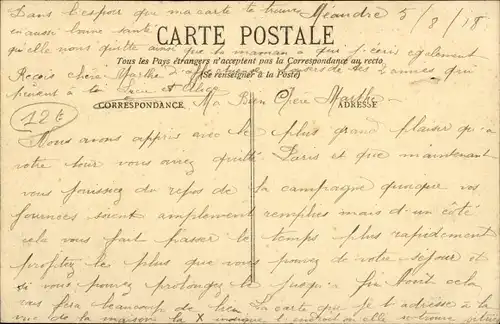 Dans l'espoir que ma carte te trouve Méandre 5/8/18
en aussi bonne santé
qu'elle nous quitte ainsi que ta maman a qui j'écris également
CARTE POSTALE
Tous les Pays étrangers n'acceptent pas la Correspondance au recto
(Se renseigner à la Poste)
Reçois chère Marthe de tes 2 amies qui
pensent à te Lucie et Alice
CORRESPONDANCE
ADRESSE
12€
Ma Bien Chère Marthe
Nous avons appris avec le plus grand plaisir qu'a
votre tour vous aviez quitté Paris et que maintenant
vous jouissiez du repos de la campagne quoique vos
journées soient amplement remplies mais d'un côté
cela vous fait passer le temps plus rapidement
profitez le plus que vous pouvez de votre séjour et
si vous pouvez prolongez le jusqu'a fin Août cela
vas fera beaucoup de bien La carte que je t'adresse à la
vue de la maison la X indique l'endroit ou elle se trouve située